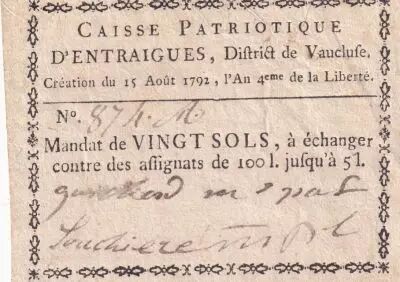 CAISSE PATRIOTIQUE
D'ENTRAIGUES, District de Vaucluse.
Création du 15 Août 1792, l'An 4eme de la Liberté.
No. 874. M
Mandat de VINGT SOLS, à échanger
contre des assignats de 100 l. jusqu'à 5 l.